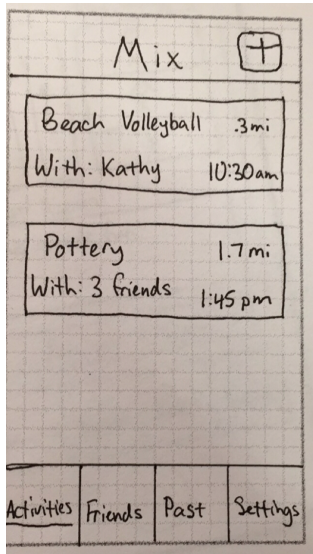 Mix +
Beach Volleyball .3mi
With: Kathy 10:30am
Pottery 1.7 mi
With: 3 friends 1:45 pm
Activities Friends Past Settings